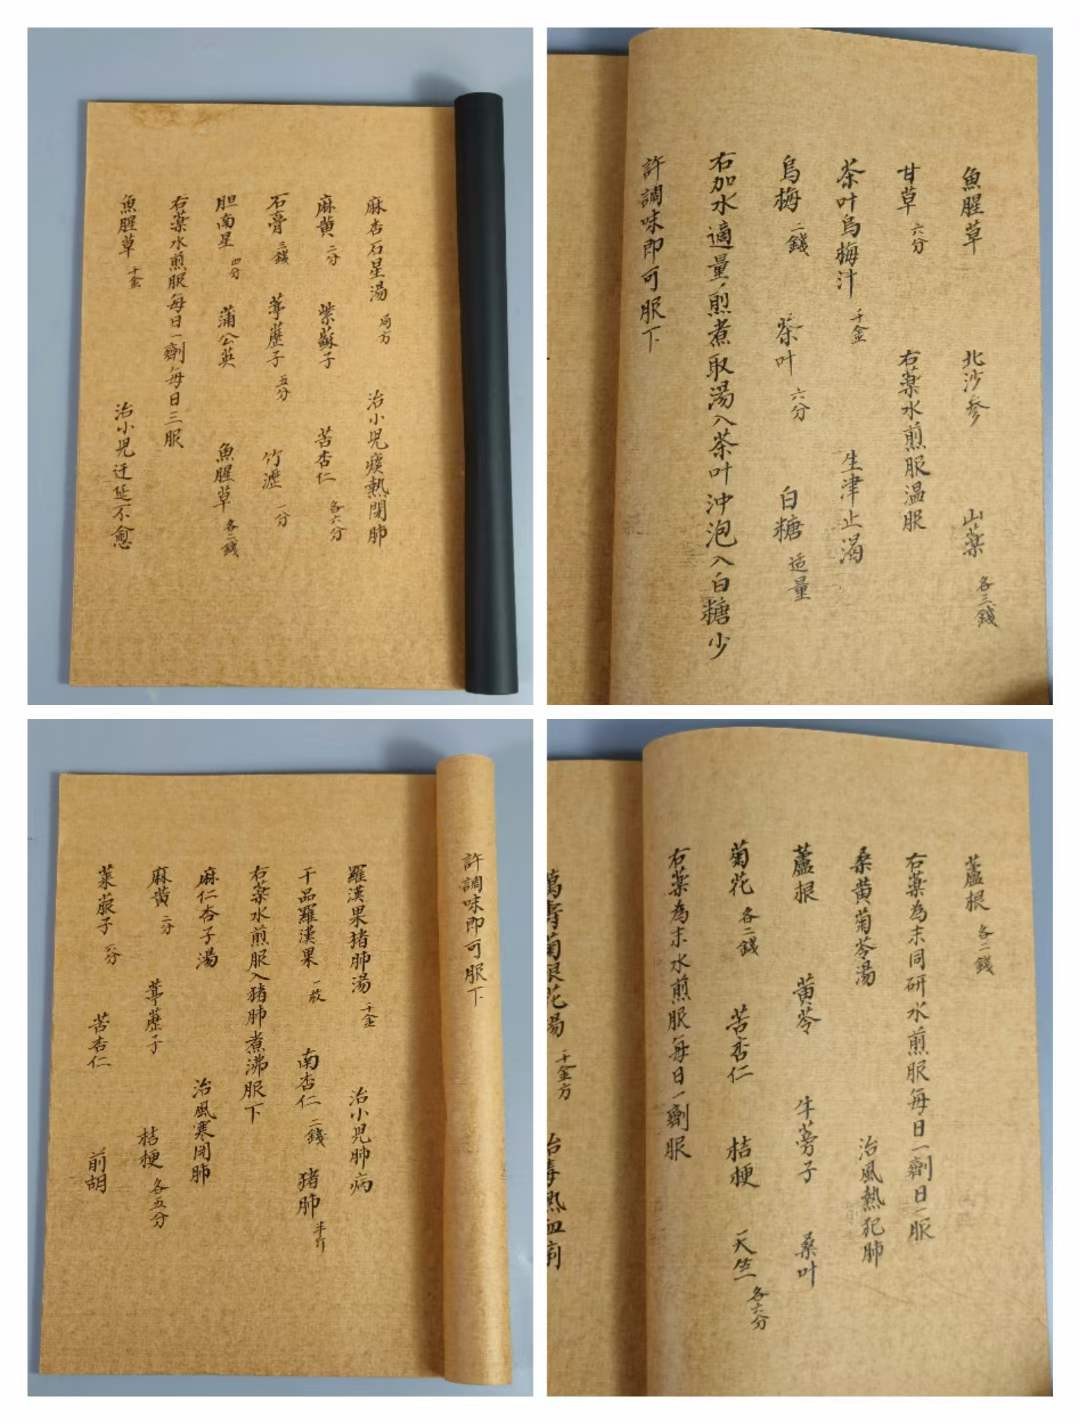 麻杏石星湯 局方 治小児痰熱閉肺
麻黄 二分 紫蘇子 苦杏仁 各六分
石膏 三錢 葶藶子 五分 竹瀝 一分
胆南星 四分 蒲公英 魚腥草 各二錢
右藥水煎服每日一劑每日三服
魚腥草 千金 治小児迁延不愈
魚腥草 北沙参 山藥 各三錢
甘草 六分 右藥水煎服温服
茶叶烏梅汁 千金 生津止渴
烏梅 二錢 茶叶 六分 白糖 适量
右加水適量煎煮取湯入茶叶沖泡入白糖少
許調味即可服下
許調味即可服下
羅漢果猪肺湯 千金 治小児肺病
干品羅漢果 一枚 南杏仁 二錢 猪肺 半斤
右藥水煎服入猪肺煮沸服下
麻仁杏子湯 治風寒閉肺
麻黄 二分 葶藶子 桔梗 各五分
莱菔子 六分 苦杏仁 前胡
蘆根 各二錢
右藥為末同研水煎服每日一劑日一服
桑黄菊苓湯 治風熱犯肺
蘆根 黄苓 牛蒡子 桑叶
菊花 各二錢 苦杏仁 桔梗 天竺 各六分
右藥為末水煎服每日一劑服
萬壽菊根花湯 千金方 治毒熱血痢